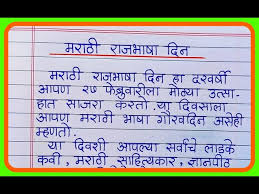 मराठी राजभाषा दिन
मराठी राजभाषा दिन हा दरवर्षी
आपण २७ फेब्रुवारीला मोठ्या उत्सा-
हात साजरा करतो. या दिवसाला
आपण मराठी भाषा गौरवदिन असेही
म्हणतो.
या दिवशी आपल्या सर्वांचे लाडके
कवी, मराठी साहित्यकार, ज्ञानपीठ